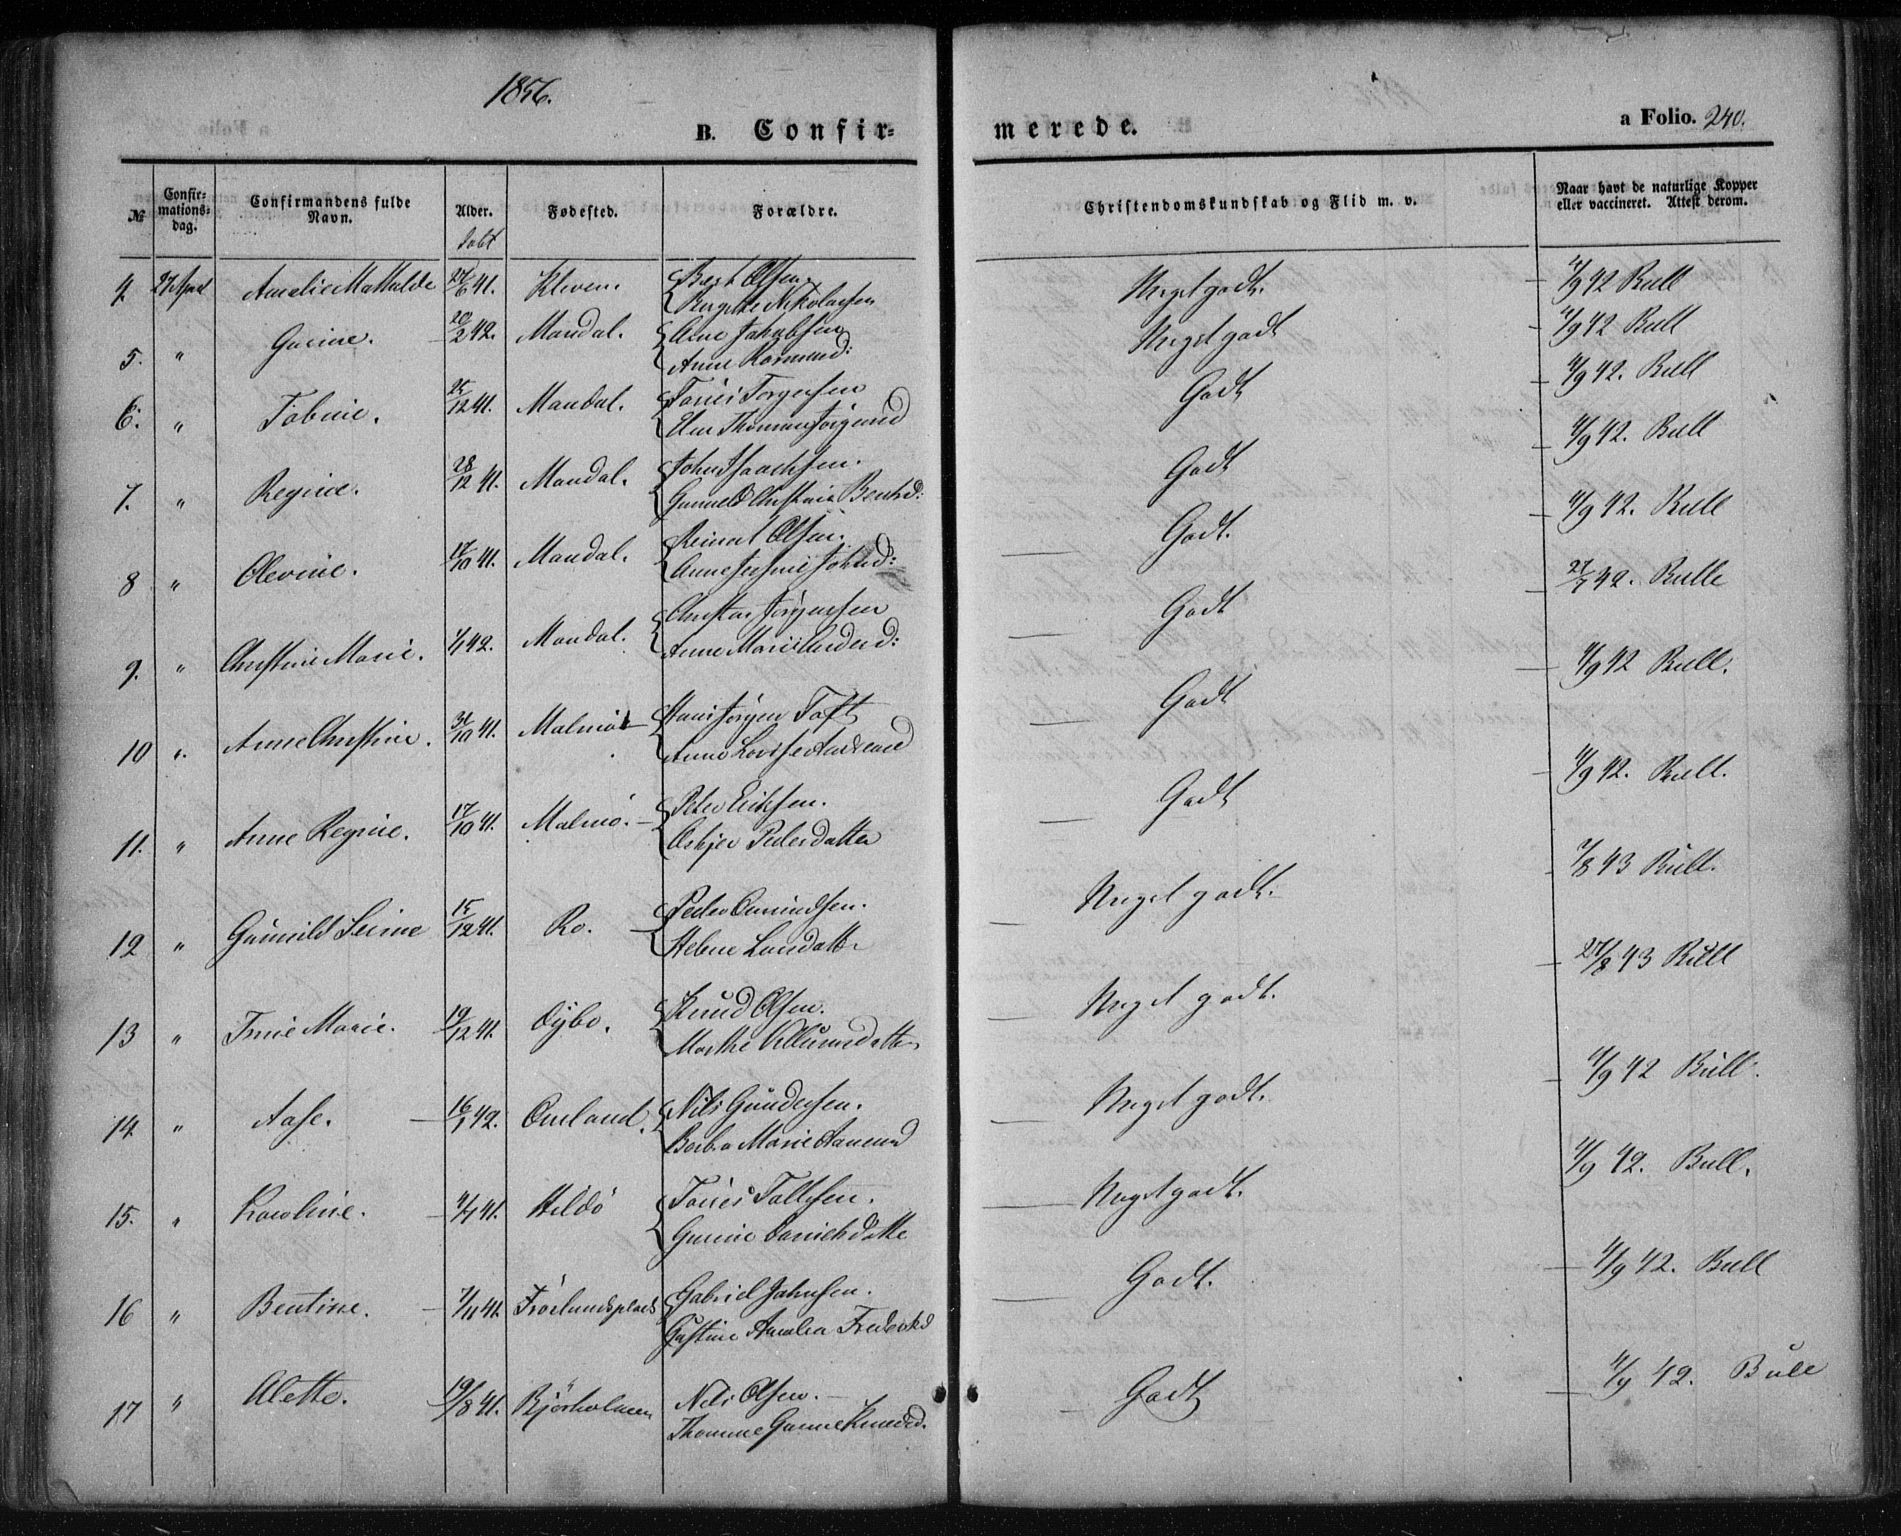 1856.
B. Confir-
merede.
a Folio. 240.
№
Confir-
mations-
dag.
Confirmandens fulde
Navn.
Alder.
dobt
Fødested.
Forældre.
Christendomskundskab og Flid m. v.
Naar havt de naturlige Kopper
eller vaccineret. Attest derom.
4. 27 April Amalie Mathilde 27/6 41. Kleven. Bert Olsen
Birgitte Nikolaisen Meget godt. 4/9 42 Bull
5. " Gurine. 20/2 42. Mandal. Arne Jakobsen
Anne Rasmusd: Meget godt 4/9 42 Bull
6. " Tobine. 25/12 41. Mandal. Tønes Torgersen
Elen Godt 4/9 42. Bull
7. " Regine. 28/12 41. Mandal. John Isaachsen.
Gunnild Christine Bentsd: Godt 4/9 42. Bull
8 " Olevine. 17/10 41. Mandal. Reinert Olsen.
Anne Johnsd: Godt. 4/9 42. Bull
9. " Christine Marie. 1/1 42. Mandal. Christen Jörgensen
Anne Marie Godt 27/7 42. Bull
10 " Anne Christine. 31/10 41. Malmö Hans Jörgen Toft
Anne Lovise Godt 4/9 42 Bull.
11. " Anne Regine. 17/10 41. Malmö. Peter Erichsen.
Asbjer Pedersdatter Godt 4/9 42. Bull.
12 " Gunnild Serine 15/12 41. Ro. Peder Omundsen.
Helene Larsdatter Meget godt. 7/8 43 Bull.
13 " Trine Marie. 19/12 41. Oybo. Knud Olsen.
Marthe Meget godt. 27/8 43 Bull
14 " Aase. 16/1 42. Omland. Nils Gundersen.
Barbra Marie Meget godt. 4/9 42 Bull.
15. " Karoline. 4/7 41. Hildö Tönes Tallefsen.
Gurine Danielsdatte Meget godt. 4/9 42. Bull.
16 " Bentine. 7/11 41. Gabriel Jahnsen.
Amalia Frederiksd Godt. 4/9 42. Bull
17 " Alette. 19/8 41. Björnholmen Nils Olsen.
Gunne Knudsd. Godt 4/9 42. Bull